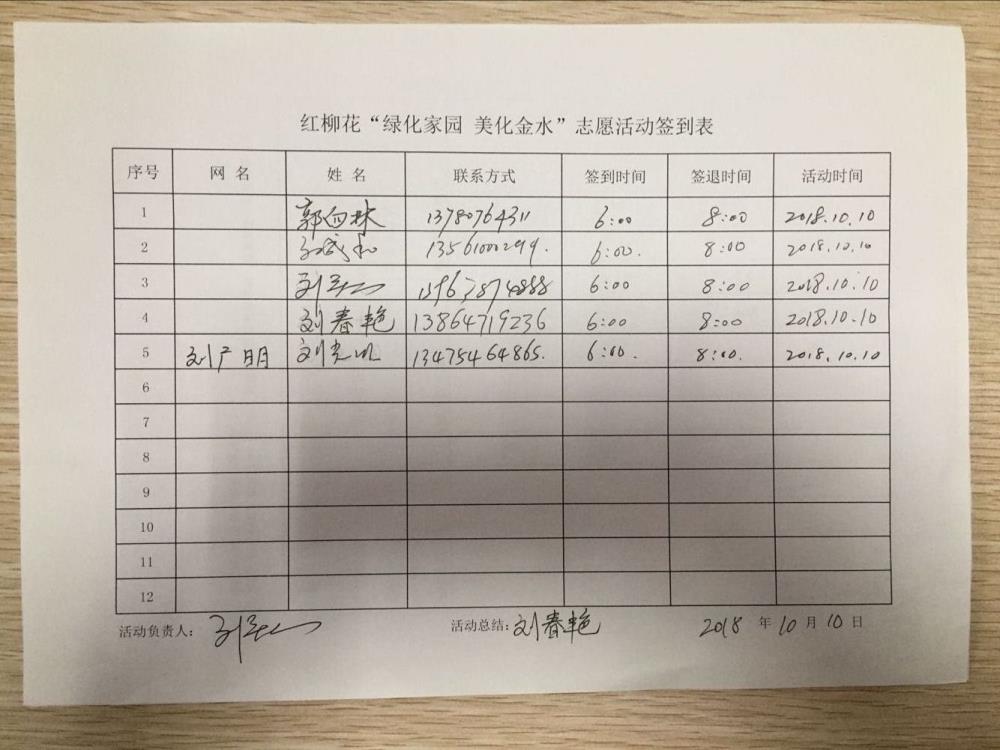 红柳花“绿化家园 美化金水”志愿活动签到表
序号 网 名 姓 名 联系方式 签到时间 签退时间 活动时间
1 郭向林 13780764311 6:00 8:00 2018.10.10
2 13561000299. 6:00. 8:00 2018.10.10
3 刘 13963874888 6:00 8:00 2018.10.10
4 刘春艳 13864719236 6:00 8:00 2018.10.10
5 刘广明 刘光明 13475464865. 6:00. 8:00. 2018.10.10
6
7
8
9
10
11
12
活动负责人: 刘 活动总结: 刘春艳 2018 年 10 月 10 日